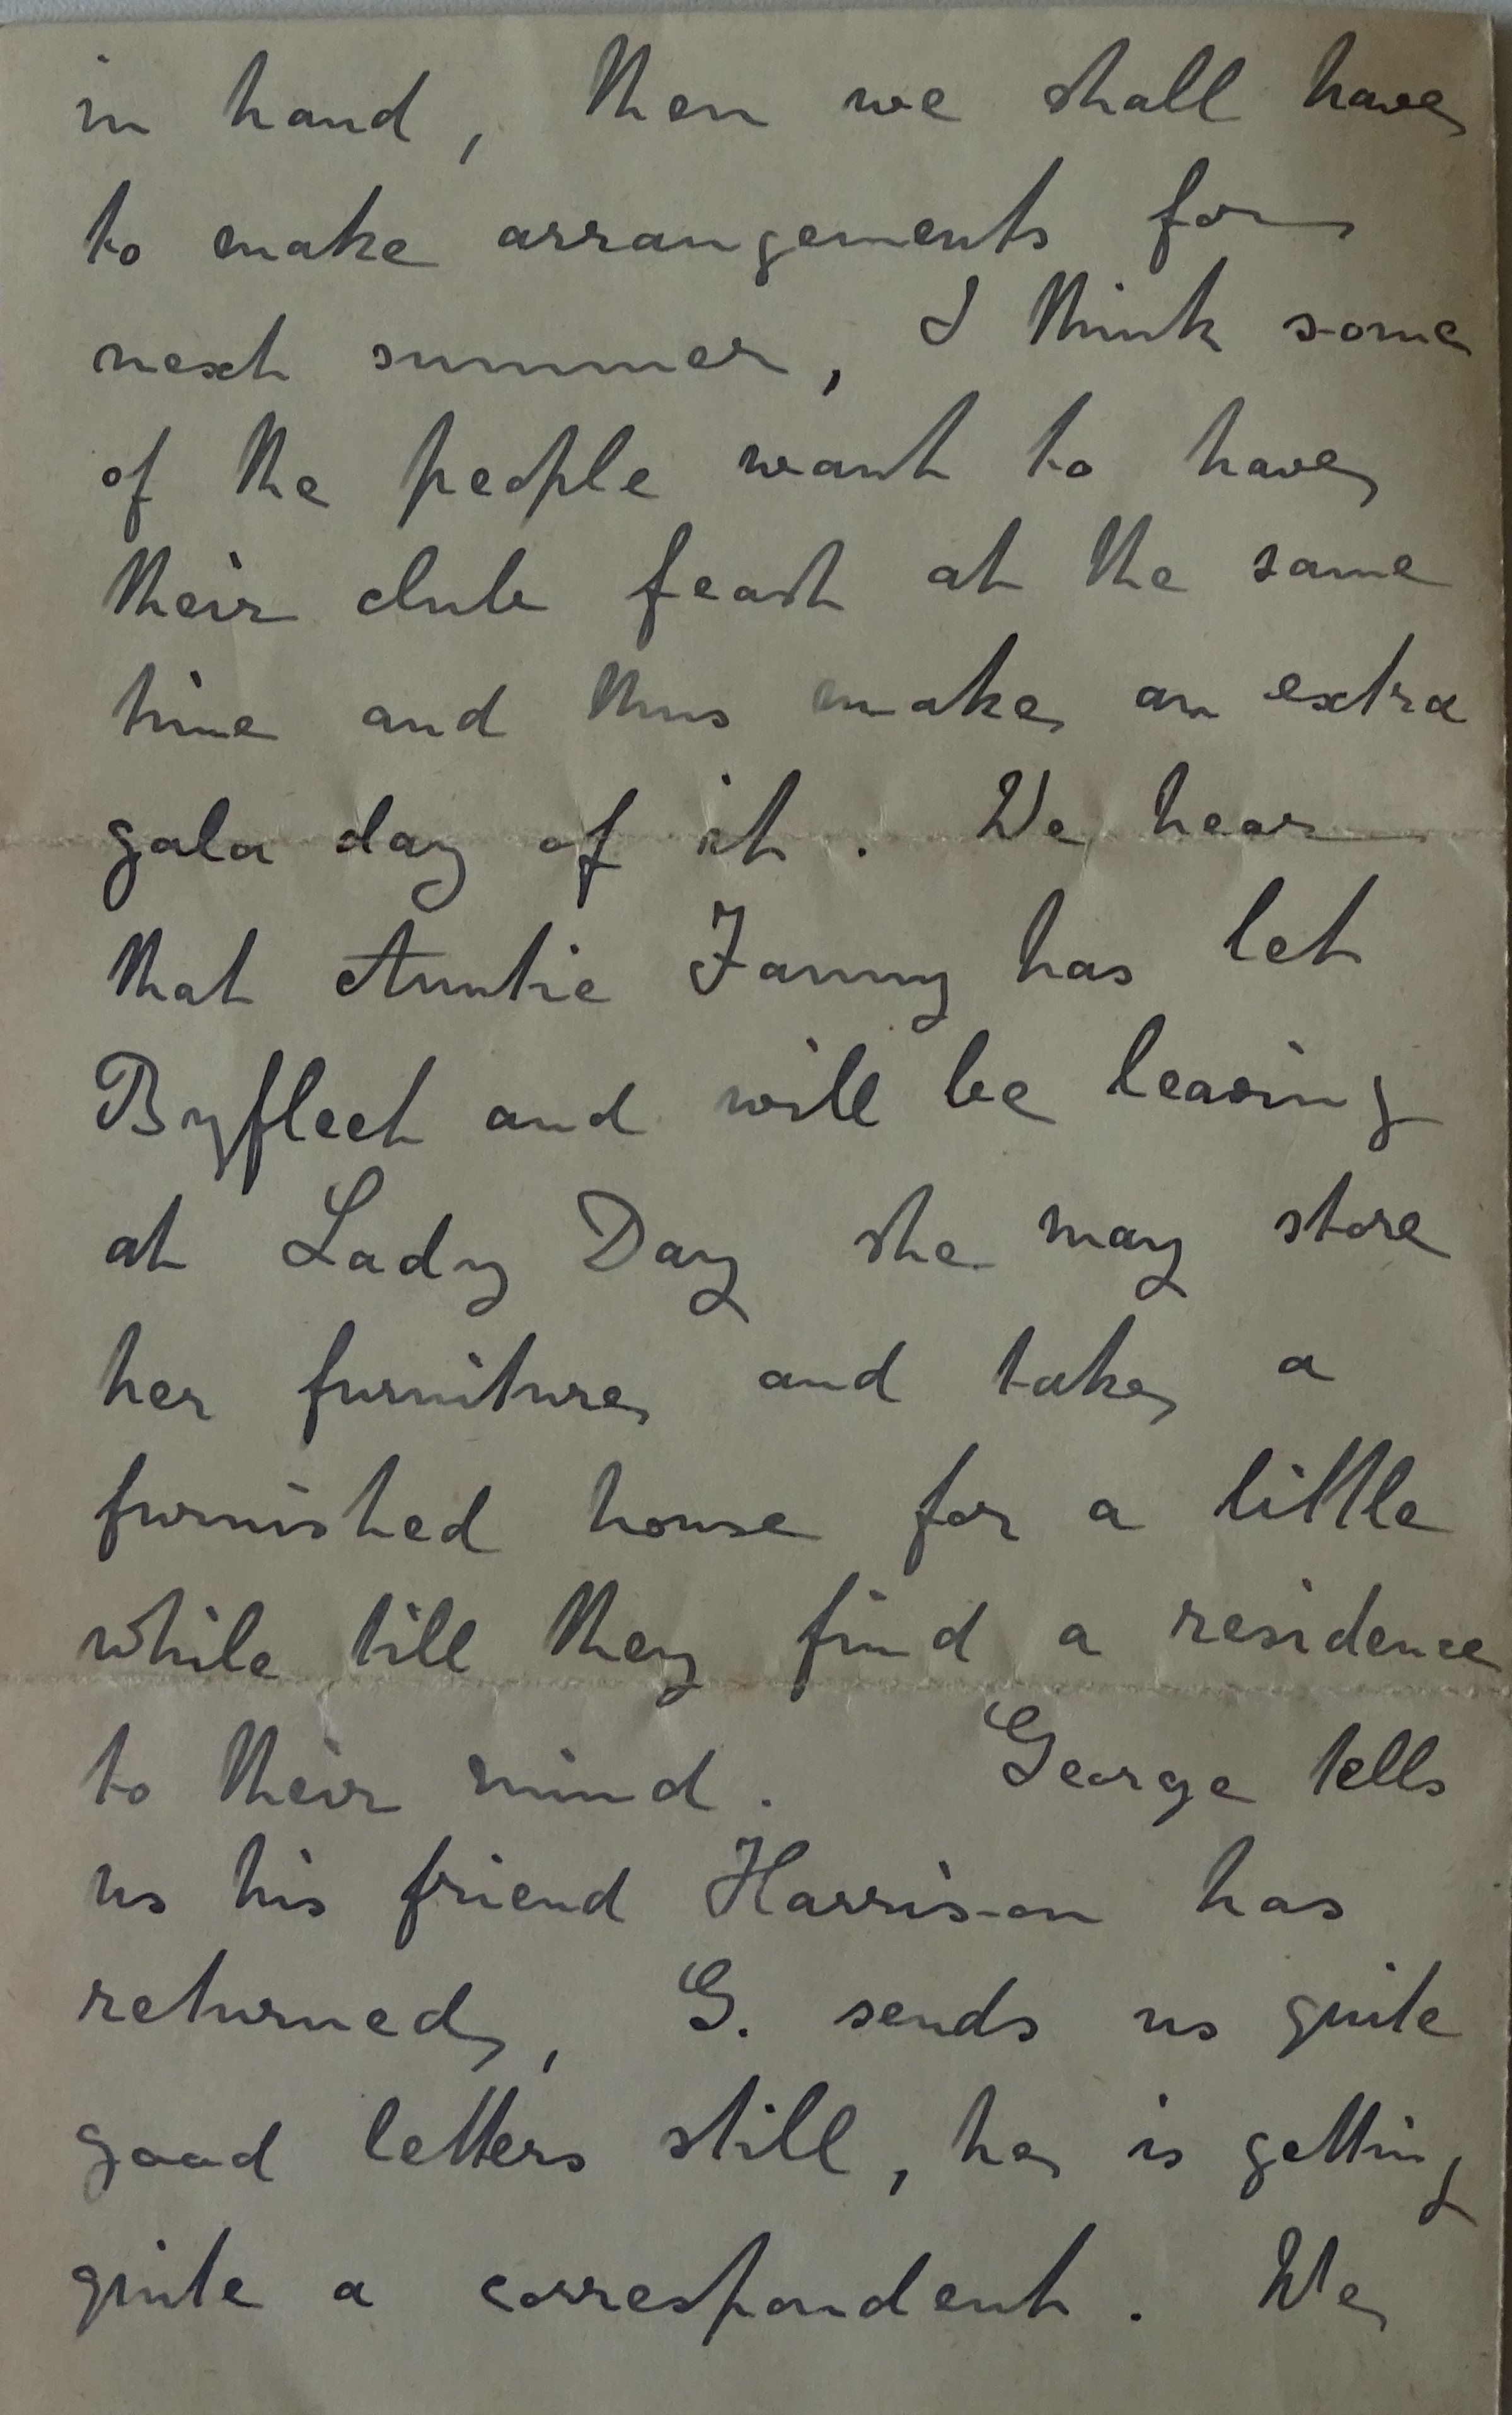 in hand, then we shall have
to make arrangements for
next summer, I think some
of the people want to have
their club feast at the same
time and thus make an extra
gala day of it. We hear
that Auntie Fanny has let
Byfleet and will be leaving
at Lady Day she may store
her furniture and take a
furnished house for a little
while till they find a residence
to their mind. George tells
us his friend Harrison has
returned, G. sends us quite
good letters still, he is getting
quite a correspondent. We